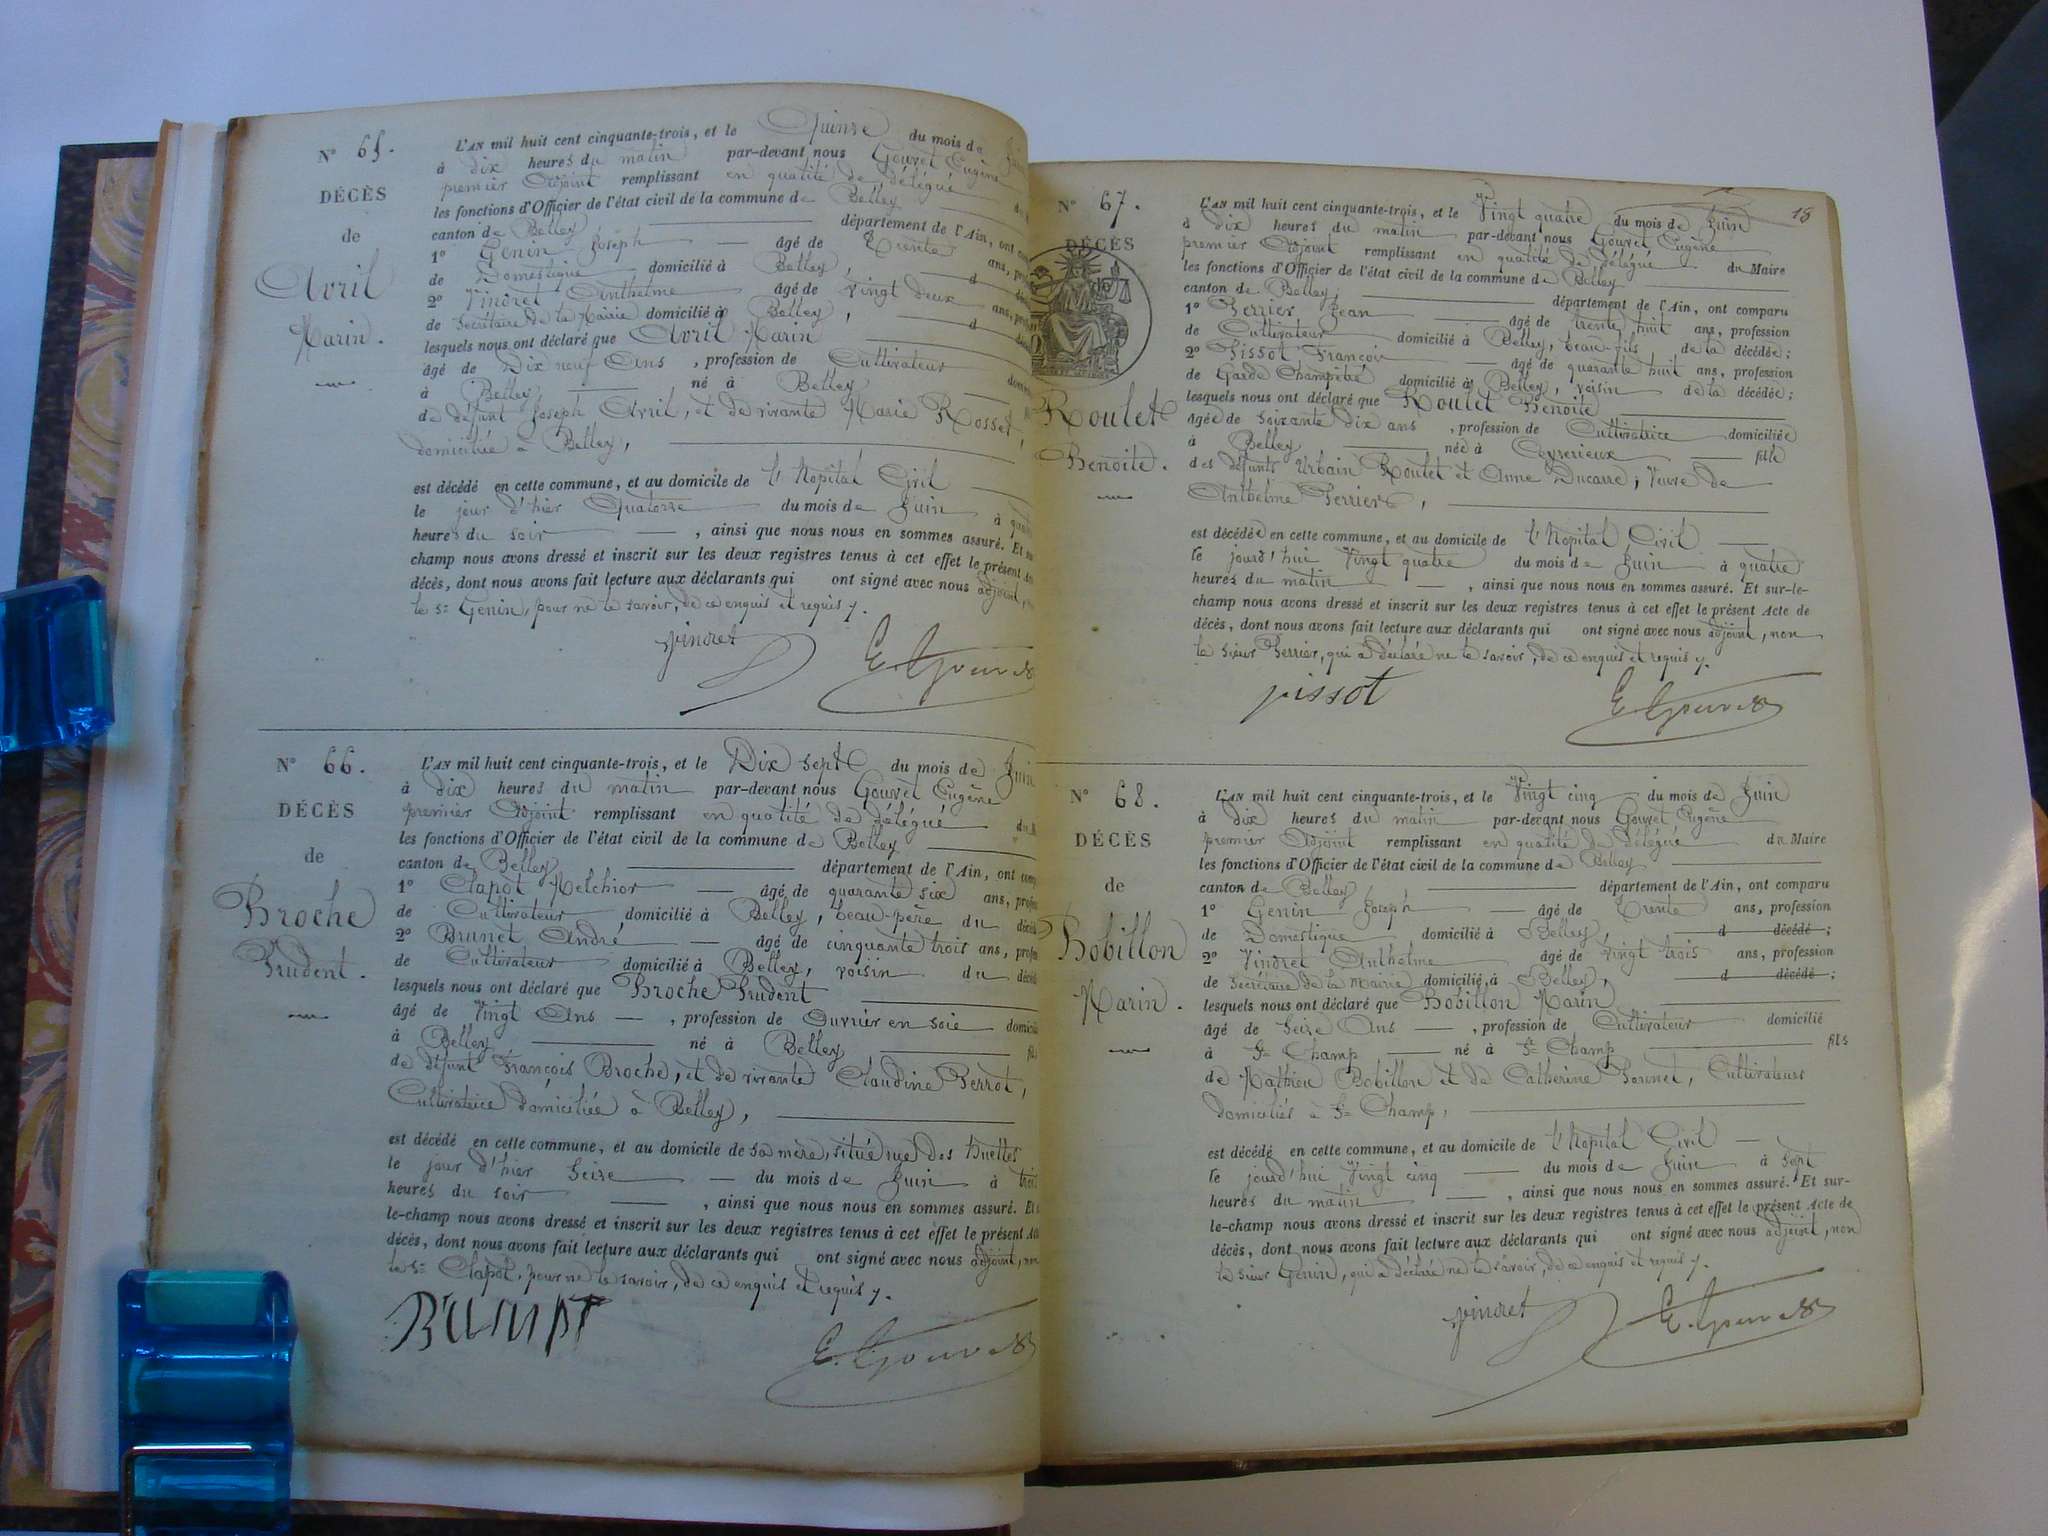 N° 65.
DÉCÈS
de
Avril
Marin.
L'AN mil huit cent cinquante-trois, et le Quinze du mois de
à dix heures du matin par-devant nous Gouvet Eugène
premier Adjoint remplissant en qualité de délégué
les fonctions d'Officier de l'état civil de la commune de Belley
canton de Belley département de l'Ain, ont
1° Genin Joseph âgé de Trente ans,
de Domestique domicilié à Belley, d
2° Vindret Anthelme âgé de vingt deux ans,
de Secrétaire de la Mairie domicilié à Belley, d
lesquels nous ont déclaré que Avril Marin
âgé de Dix neuf Ans, profession de Cultivateur
à Belley né à Belley
de défunt Joseph Avril, et de vivante Marie Rosset,
domiciliée à Belley,
est décédé en cette commune, et au domicile de l'hôpital Civil
le jour d'hier Quatorze du mois de Juin à
heures du soir, ainsi que nous nous en sommes assuré. Et
champ nous avons dressé et inscrit sur les deux registres tenus à cet effet le présent
décès, dont nous avons fait lecture aux déclarants qui ont signé avec nous adjoint,
le sr Genin, pour ne le savoir, de ce enquis et requis ./.
Vindret E. Gouvet
N° 66.
DÉCÈS
de
Broche
Prudent.
L'AN mil huit cent cinquante-trois, et le Dix sept du mois de Juin
à dix heures du matin par-devant nous Gouvet Eugène
premier Adjoint remplissant en qualité de délégué du
les fonctions d'Officier de l'état civil de la commune de Belley
canton de Belley département de l'Ain, ont
1° Clapot Melchior âgé de quarante six ans,
de Cultivateur domicilié à Belley, beau-père du
2° Brunet André âgé de cinquante trois ans,
de Cultivateur domicilié à Belley, voisin du
lesquels nous ont déclaré que Broche Prudent
âgé de Vingt Ans, profession de Ouvrier en soie
à Belley né à Belley fils
de défunt François Broche, et de vivante Claudine Perrot,
Cultivatrice domiciliée à Belley,
est décédé en cette commune, et au domicile de sa mère, situé rue des
le jour d'hier Seize du mois de Juin à
heures du soir, ainsi que nous nous en sommes assuré. Et
le-champ nous avons dressé et inscrit sur les deux registres tenus à cet effet le présent
décès, dont nous avons fait lecture aux déclarants qui ont signé avec nous adjoint, non
le sr Clapot, pour ne le savoir, de ce enquis et requis ./.
E. Gouvet
18
N° 67.
DÉCÈS
Roulet
Benoite.
L'AN mil huit cent cinquante-trois, et le Vingt quatre du mois de Juin
à dix heures du matin par-devant nous Gouvet Eugène
premier Adjoint remplissant en qualité de délégué du Maire
les fonctions d'Officier de l'état civil de la commune de Belley
canton de Belley, département de l'Ain, ont comparu
1° Perrier Jean âgé de trente huit ans, profession
de Cultivateur domicilié à Belley, beau-fils de la décédée;
2° Pissot François âgé de quarante huit ans, profession
de Garde Champêtre domicilié à Belley, voisin de la décédée;
lesquels nous ont déclaré que Roulet Benoite
âgée de soixante dix ans, profession de Cultivatrice domiciliée
à Belley née à Ceyzerieux fille
des défunts Urbain Roulet et Anne Ducarre; Veuve de
Anthelme Perrier,
est décédée en cette commune, et au domicile de l'Hôpital Civil
le jourd'hui Vingt quatre du mois de Juin à quatre
heures du matin, ainsi que nous nous en sommes assuré. Et sur-le-
champ nous avons dressé et inscrit sur les deux registres tenus à cet effet le présent Acte de
décès, dont nous avons fait lecture aux déclarants qui ont signé avec nous adjoint, non
le sieur Perrier, qui a déclaré ne le savoir, de ce enquis et requis ./.
pissot E. Gouvet
N° 68.
DÉCÈS
de
Bobillon
Marin.
L'AN mil huit cent cinquante-trois, et le Vingt cinq du mois de Juin
à dix heures du matin par-devant nous Gouvet Eugène
premier Adjoint remplissant en qualité de délégué du Maire
les fonctions d'Officier de l'état civil de la commune de Belley
canton de Belley département de l'Ain, ont comparu
1° Genin Joseph âgé de Trente ans, profession
de Domestique domicilié à Belley, d décédé;
2° Vindret Anthelme âgé de vingt trois ans, profession
de Secrétaire de la Mairie domicilié à Belley, d décédé;
lesquels nous ont déclaré que Bobillon Marin
âgé de Seize Ans, profession de Cultivateur domicilié
à St Champ né à St Champ fils
de Mathieu Bobillon et de Catherine Bonnet, Cultivateurs
domiciliés à St Champ,
est décédé en cette commune, et au domicile de l'Hopital Civil
le jourd'hui Vingt cinq du mois de Juin à Sept
heures du matin, ainsi que nous nous en sommes assuré. Et sur-
le-champ nous avons dressé et inscrit sur les deux registres tenus à cet effet le présent Acte de
décès, dont nous avons fait lecture aux déclarants qui ont signé avec nous adjoint, non
le sieur Genin, qui a déclaré ne le savoir, de ce enquis et requis ./.
Vindret E. Gouvet